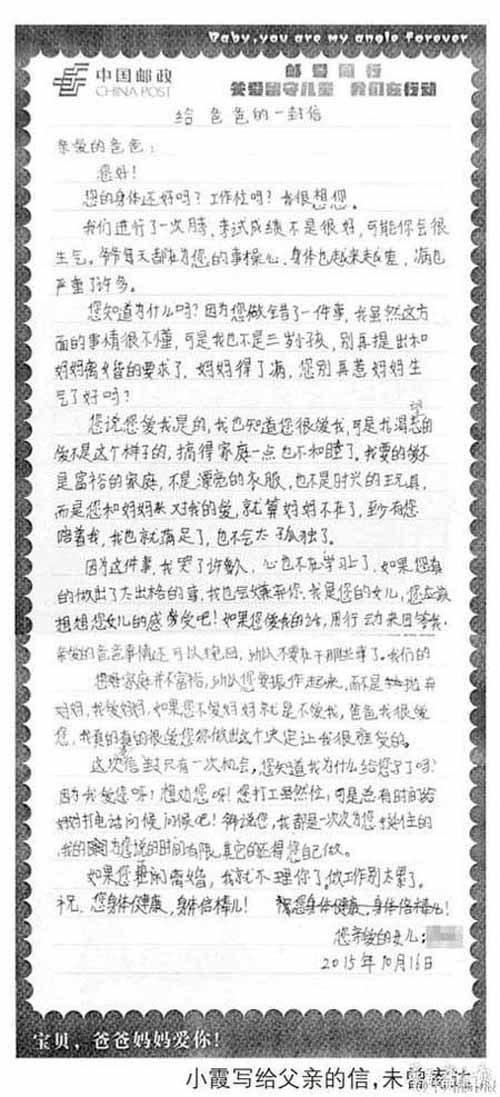 Baby, you are my angle forever
中国邮政
CHINA POST
邮爱同行
关爱留守儿童 我们在行动
给爸爸的一封信
亲爱的爸爸：
您好！
您的身体还好吗？工作忙吗？我很想您。
我们进行了一次月考，考试成绩不是很好，可能你会很
生气。爷爷每天都在为您的事操心，身体也越来越差，病也
严重了许多。
您知道为什么吗？因为您做错了一件事，我虽然这方
面的事情很不懂，可是我也不是三岁小孩，别再提出和
妈妈离婚的要求了，妈妈得了病，您别再惹妈妈生
气了好吗？
您说您爱我是的，我也知道您很爱我，可是我渴望的
爱不是这个样子的，搞得家庭一点也不和睦了。我要的爱不
是富裕的家庭，不是漂亮的衣服，也不是时兴的玩具，
而是您和妈妈对我的爱，就算妈妈不在了，至少有您
陪着我，我也就满足了，也不会太孤独了。
因为这件事，我哭了许多次，心也不在学习上了，如果您真
的做出了太出格的事，我也会嫌弃你。我是您的女儿，您应该
想想您女儿的感受吧！如果您爱我的话，用行动来回答我。
亲爱的爸爸事情还可以挽回，所以不要在干那些事了。我们的
家庭并不富裕，所以您要振作起来，而不是抛弃
妈妈，我爱妈妈，如果您不爱妈妈就是不爱我，爸爸我很爱
您，我真的真的很爱您你做出这个决定让我很难受的。
这次信封只有一次机会，您知道我为什么给您写了吗？
因为我爱您呀！想劝您呀！您打工虽然忙，可是总有时间给
妈妈打电话问候问候吧！解说您，我都是一次次为您接住的
，我的为您说的时间有限，其它的还得您自己做。
如果您要闹离婚，我就不理你了。做工作别太累了。
祝您身体健康，身体倍棒儿！ 祝您身体健康，身体倍棒儿！
您亲爱的女儿：
2015年10月16日
宝贝，爸爸妈妈爱你！
小霞写给父亲的信，未曾寄达。